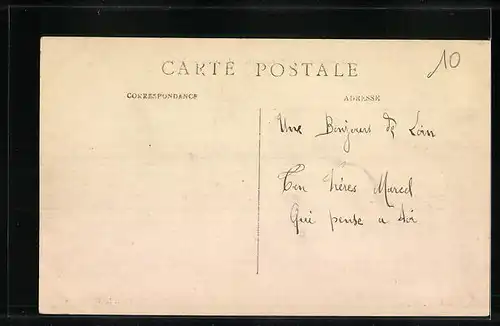 CARTE POSTALE
10
CORRESPONDANCE
ADRESSE
Une Bonjours de Loin
Ten frères Marcel
Qui pense a toi